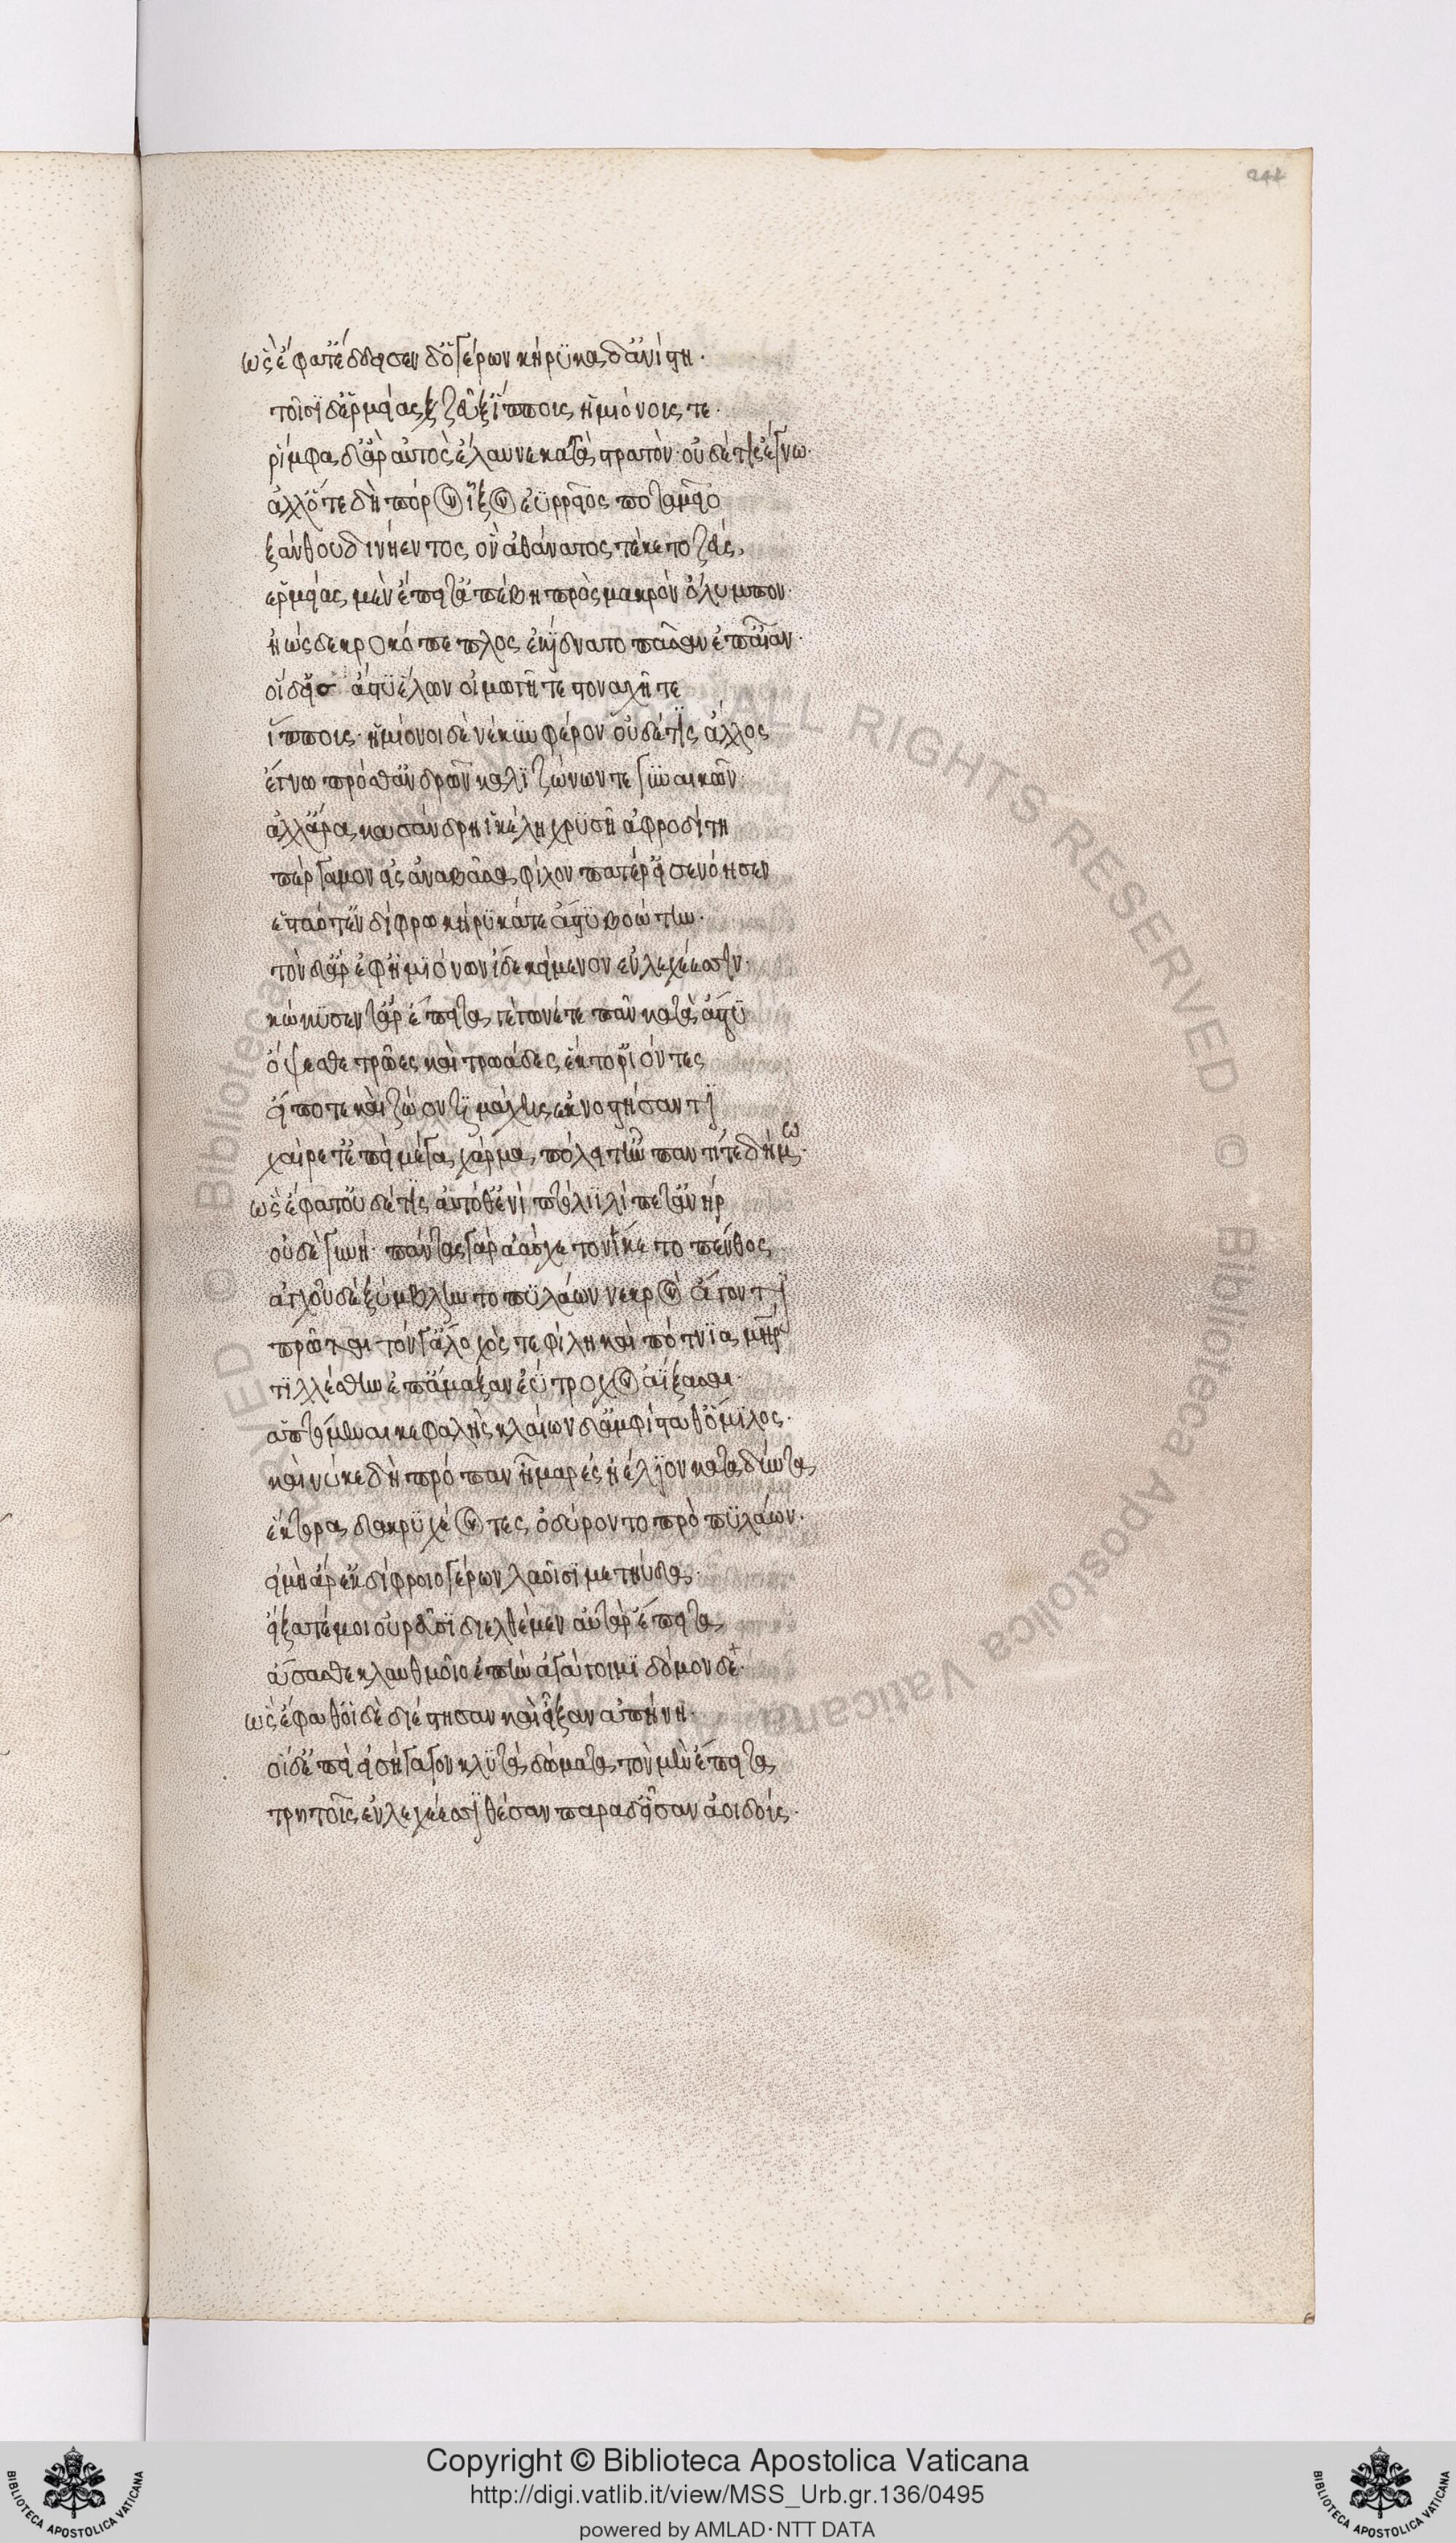 244
ὣς ἔφατ' ἔδδεισεν δ' ὁ γέρων κήρυκα δ' ἀνίστη·
τοῖσι δ' ἑρμείας ζεῦξ' ἵππους ἡμιόνους τε·
ῥίμφα δ' ἄρ' αὐτὸς ἔλαυνε κατὰ στρατὸν· οὐδέ τις ἔγνω·
ἀλλ' ὅτε δὴ πόρον ἷξον ἐϋρρεῖος ποταμοῖο
ξάνθου δινήεντος ὃν ἀθάνατος τέκετο ζεύς,
ἑρμείας μὲν ἔπειτ' ἀπέβη πρὸς μακρὸν ὄλυμπον·
ἠὼς δὲ κροκόπεπλος ἐκίδνατο πᾶσαν ἐπ' αἶαν·
οἱ δ' εἰς ἄστυ ἔλων οἰμωγῇ τε στοναχῇ τε
ἵππους· ἡμίονοι δὲ νέκυν φέρον οὐδέ τις ἄλλος
ἔγνω πρόσθ' ἀνδρῶν καλλιζώνων τε γυναικῶν·
ἀλλ' ἄρα κασσάνδρη ἰκέλη χρυσῇ ἀφροδίτῃ
πέργαμον εἰς ἀναβᾶσα φίλον πατέρ' εἰσενόησεν
ἑσταότ' ἐν δίφρῳ κήρυκά τε ἀστυβοώτην·
τὸν δ' ἄρ' ἐφ' ἡμιόνων ἴδε κείμενον ἐν λεχέεσσιν·
κώκυσεν τ' ἄρ' ἔπειτα γέγωνέ τε πᾶν κατὰ ἄστυ
ὄψεσθε τρῶες καὶ τρωάδες ἕκτορ' ἰόντες
εἴποτε καὶ ζώοντι μάχης ἐκνοστήσαντι
χαίρετ' ἐπεὶ μέγα χάρμα πόλει τ' ἦν παντί τε δήμω·
ὣς ἔφατ' οὐδέ τις αὐτόθ' ἐνὶ πτόλιϊ λίπετ' ἀνὴρ
οὐδὲ γυνή· πάντας γὰρ ἀάσχετον ἵκετο πένθος
ἀγχοῦ δὲ ξύμβληντο πυλάων νεκρὸν ἄγοντι
πρῶται τόνγ' ἄλοχός τε φίλη καὶ πότνια μήτηρ
τιλλέσθην ἐπ' ἄμαξαν ἐΰτροχον ἀΐξασαι·
ἁπτόμεναι κεφαλῆς κλαίων δ' ἀμφίσταθ' ὅμιλος·
καί νύ κε δὴ πρόπαν ἦμαρ ἐς ἠέλιον καταδύντα
ἕκτορα δακρυχέοντες ὀδύροντο πρὸ πυλάων·
εἰ μὴ ἄρ' ἐκ δίφροιο γέρων λαοῖσι μετηύδα·
εἴξατέ μοι οὐρεῦσι διελθέμεν αὐτὰρ ἔπειτα
ἄσασθε κλαυθμοῖο ἐπὴν ἀγάγοιμι δόμονδε·
ὣς ἔφαθ' οἱ δὲ διέστησαν καὶ εἶξαν ἀπήνῃ·
οἱ δ' ἐπεὶ εἰσήγαγον κλυτὰ δώματα τὸν μὲν ἔπειτα
τρητοῖς ἐν λεχέεσσι θέσαν παρὰ δ' εἷσαν ἀοιδούς·
Copyright © Biblioteca Apostolica Vaticana
http://digi.vatlib.it/view/MSS_Urb.gr.136/0495
powered by AMLAD·NTT DATA